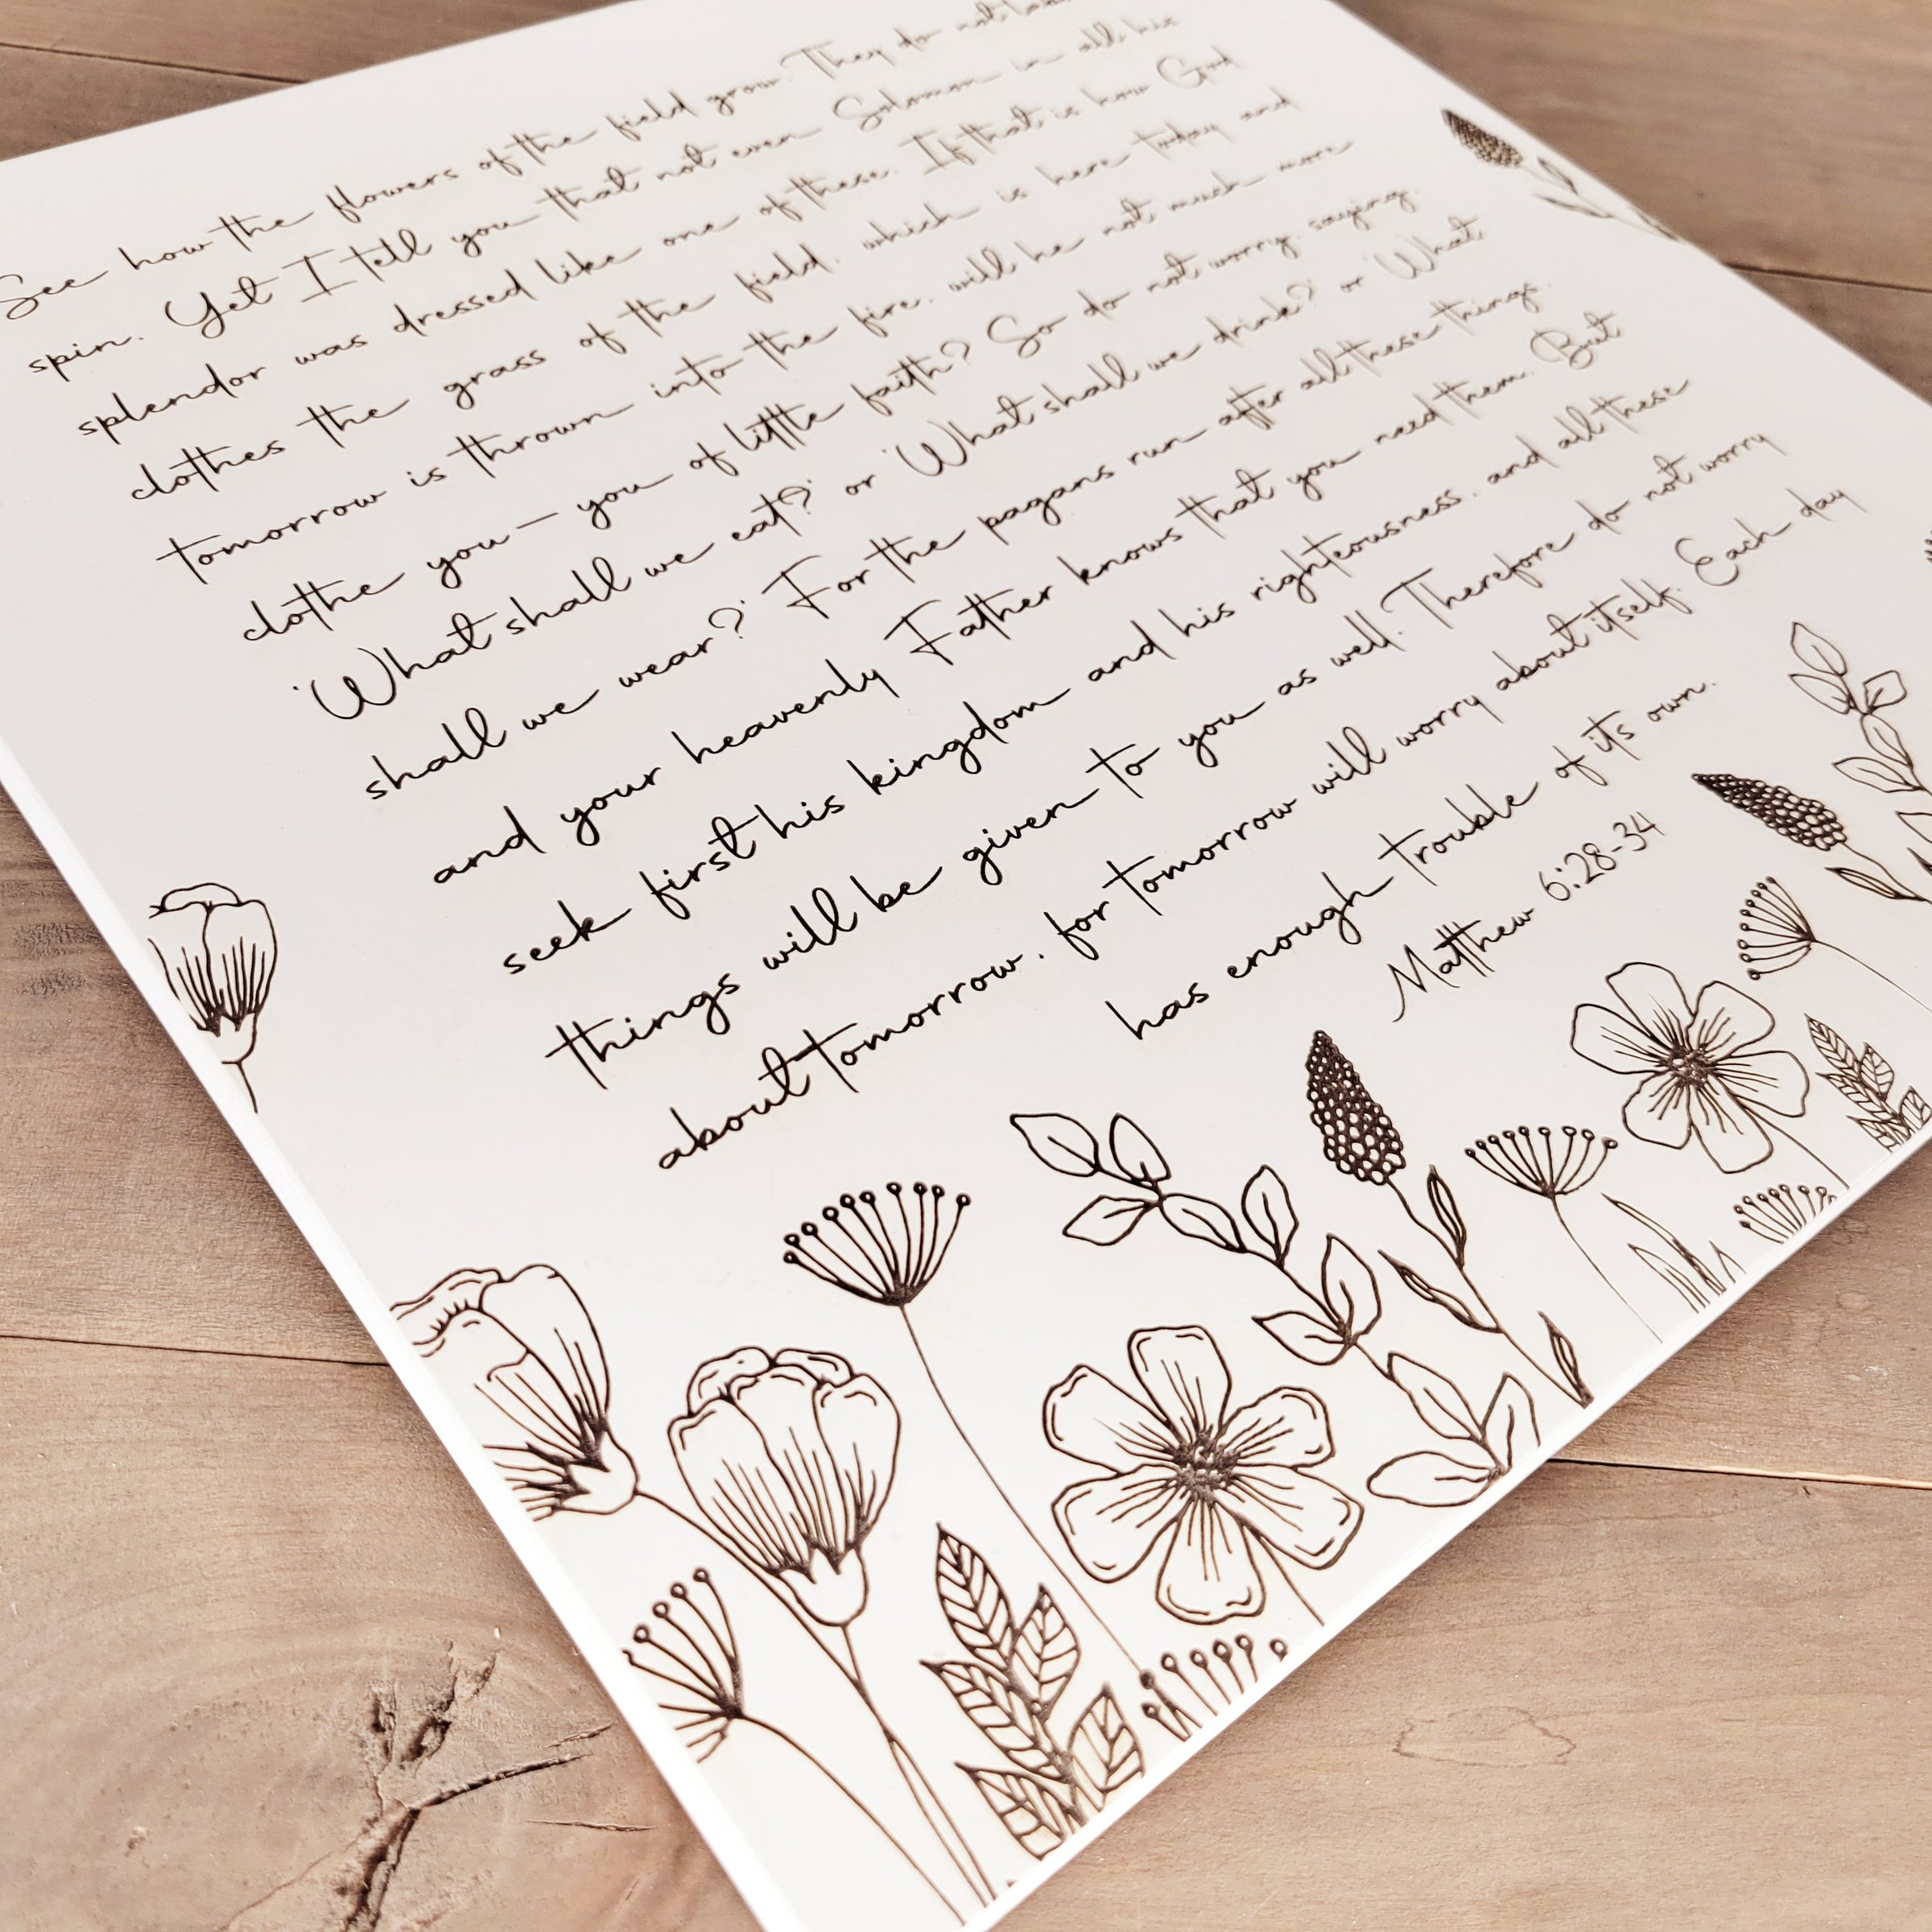 See how the flowers of the field grow. They do not
spin. Yet I tell you that not even Solomon in all his
splendor was dressed like one of these. If that is how God
clothes the grass of the field, which is here today and
tomorrow is thrown into the fire, will he not much more
clothe you — you of little faith? So do not worry, saying,
'What shall we eat?' or 'What shall we drink?' or 'What
shall we wear?' For the pagans run after all these things,
and your heavenly Father knows that you need them. But
seek first his kingdom and his righteousness, and all these
things will be given to you as well. Therefore do not worry
about tomorrow, for tomorrow will worry about itself. Each day
has enough trouble of its own.
Matthew 6:28-34